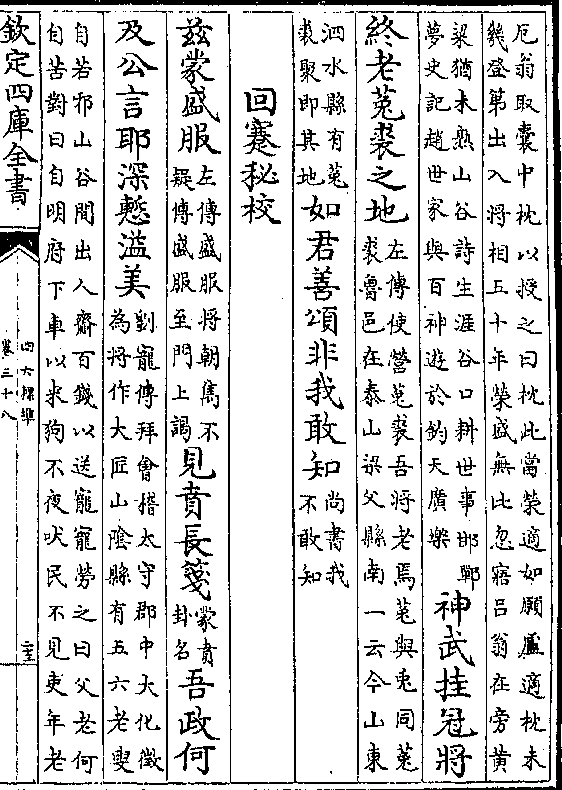 厄翁取囊中枕以授之曰枕此當榮適如願盧適枕未
幾登第出入將相五十年榮盛無比忽寤吕翁在旁黄
粱猶未熟山谷詩生涯谷口耕世事邯鄲
夢史記趙世家與百神遊於鈞天廣樂
神武挂冠將
終老菟裘之地
左傳使營菟裘吾將老焉菟與兎同菟
裘魯邑在泰山梁父縣南一云今山東
泗水縣有菟
裘聚即其地
如君善頌非我敢知
尚書我
不敢知
回蹇秘校
兹蒙盛服
左傳盛服將朝雋不
疑傳盛服至門上謁
見賁長箋
蒙賁
卦名
吾政何
及公言耶深慙溢美
劉寵傳拜會稽太守郡中大化徵
為將作大匠山隂縣有五六老叟
自若邪山谷間出人齎百錢以送寵寵勞之曰父老何
自苦對曰自明府下車以來狗不夜吠民不見吏年老
欽定四庫全書
四六標準
卷三十八